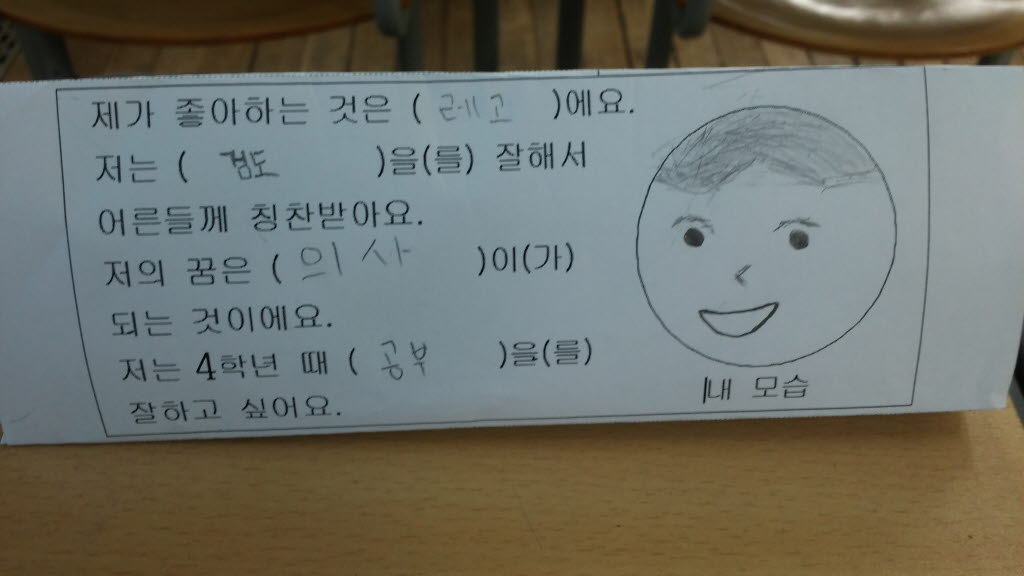 제가 좋아하는 것은 ( 레고 )에요.
저는 ( 검도 )을(를) 잘해서
어른들께 칭찬받아요.
저의 꿈은 ( 의사 )이(가)
되는 것이에요.
저는 4학년 때 ( 공부 )을(를)
잘하고 싶어요.
내 모습